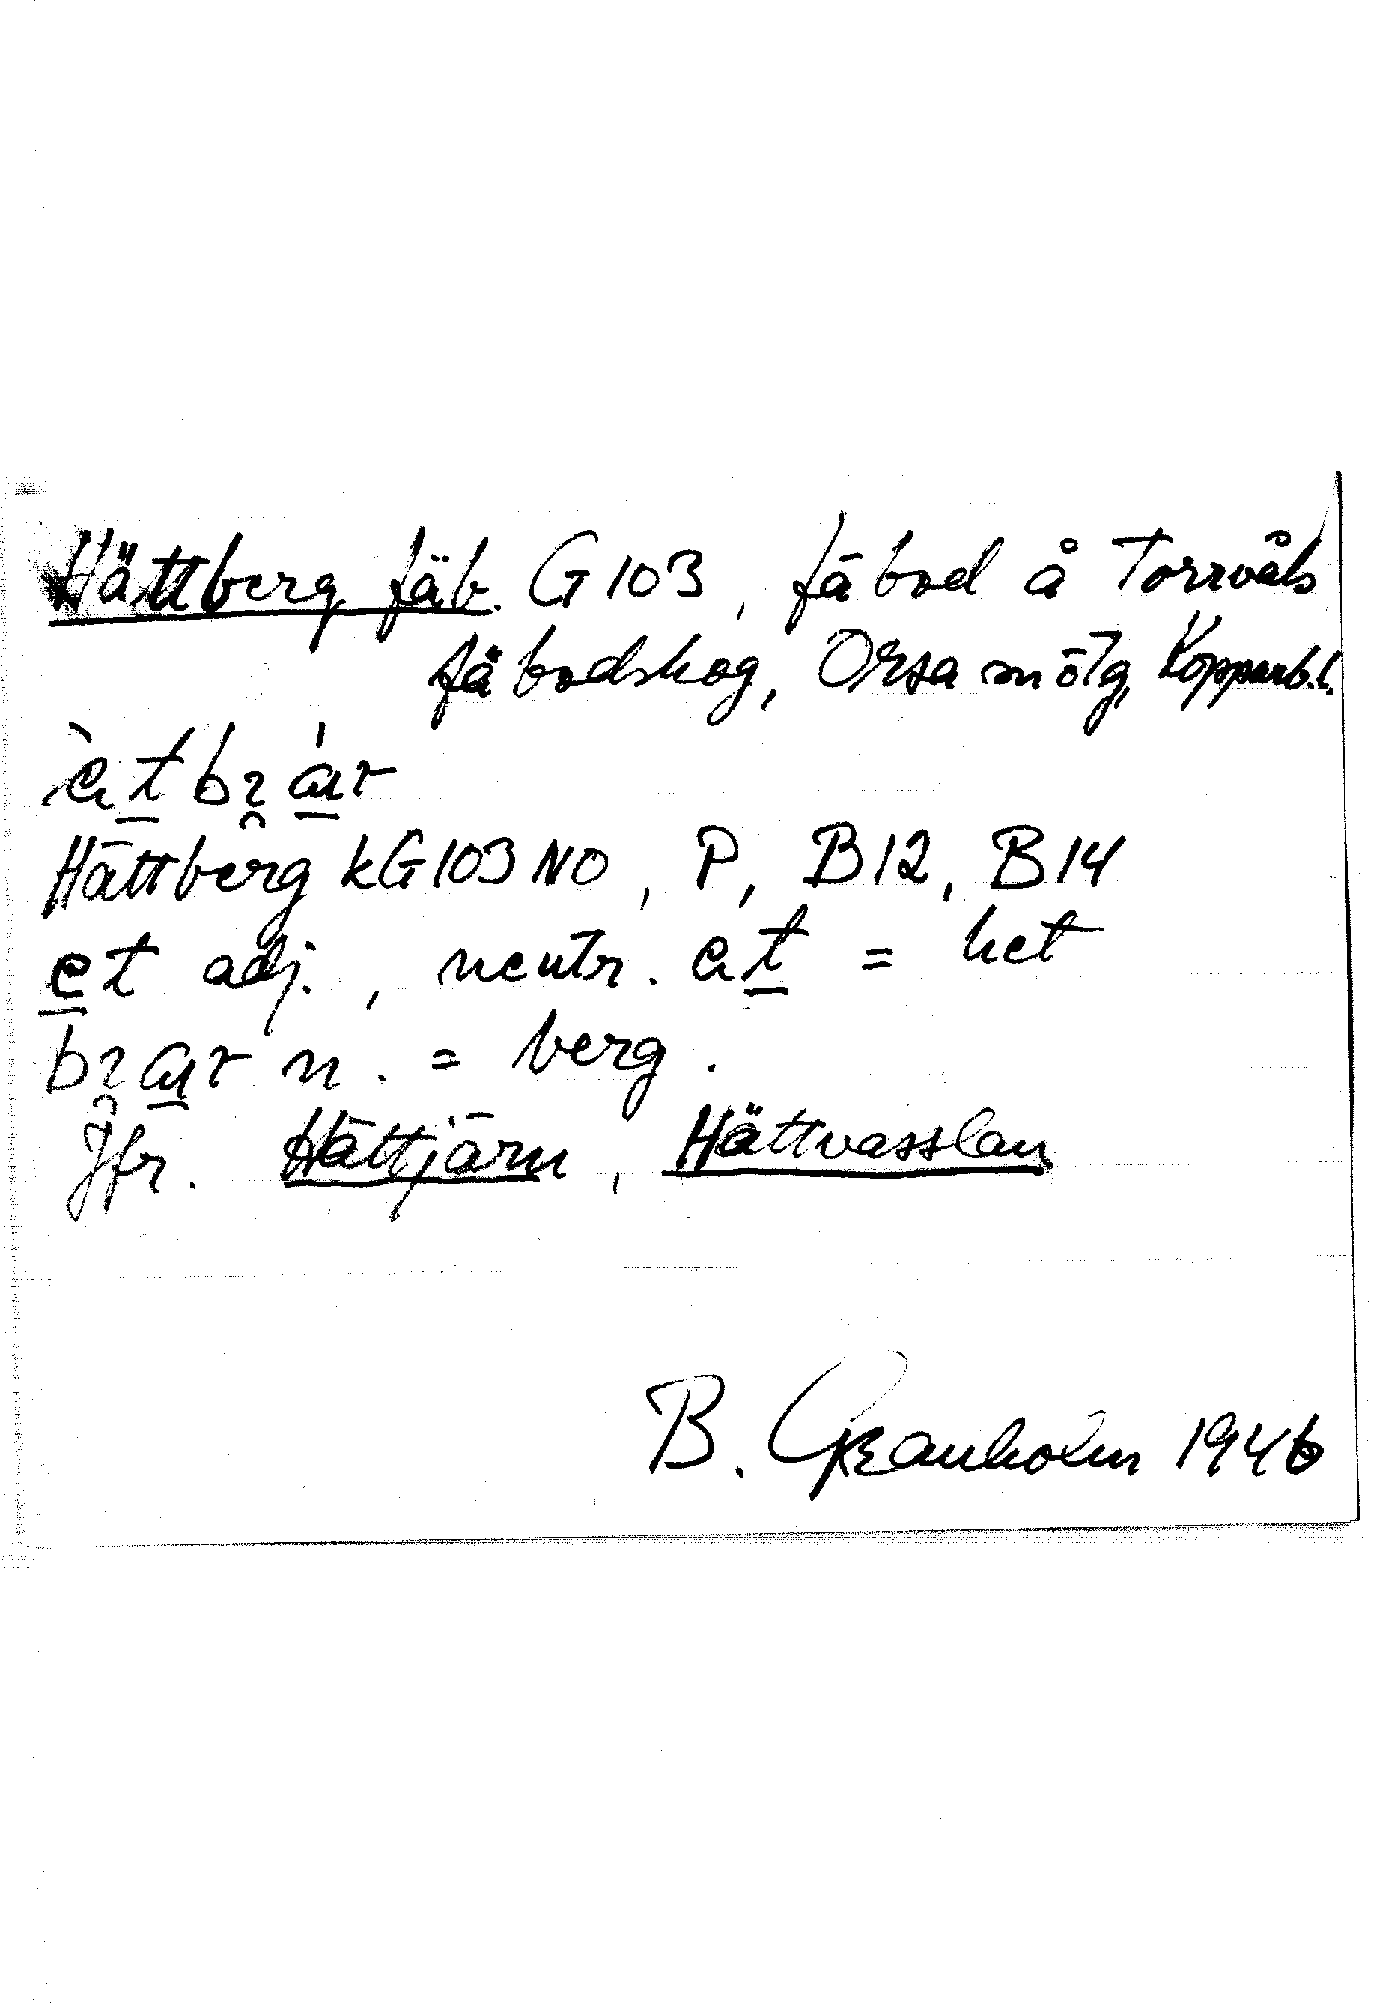 Hättberg fäb. G103, fäbod å Torrvåls
fäbodskog, Orsa snölg, Kopparb.l.
Hättberg kG103NO, P, B12, B14
et adj., neutr. = het
n. = berg.
Jfr. Hättjärn, Hättvasslan
B. Granholm 1946